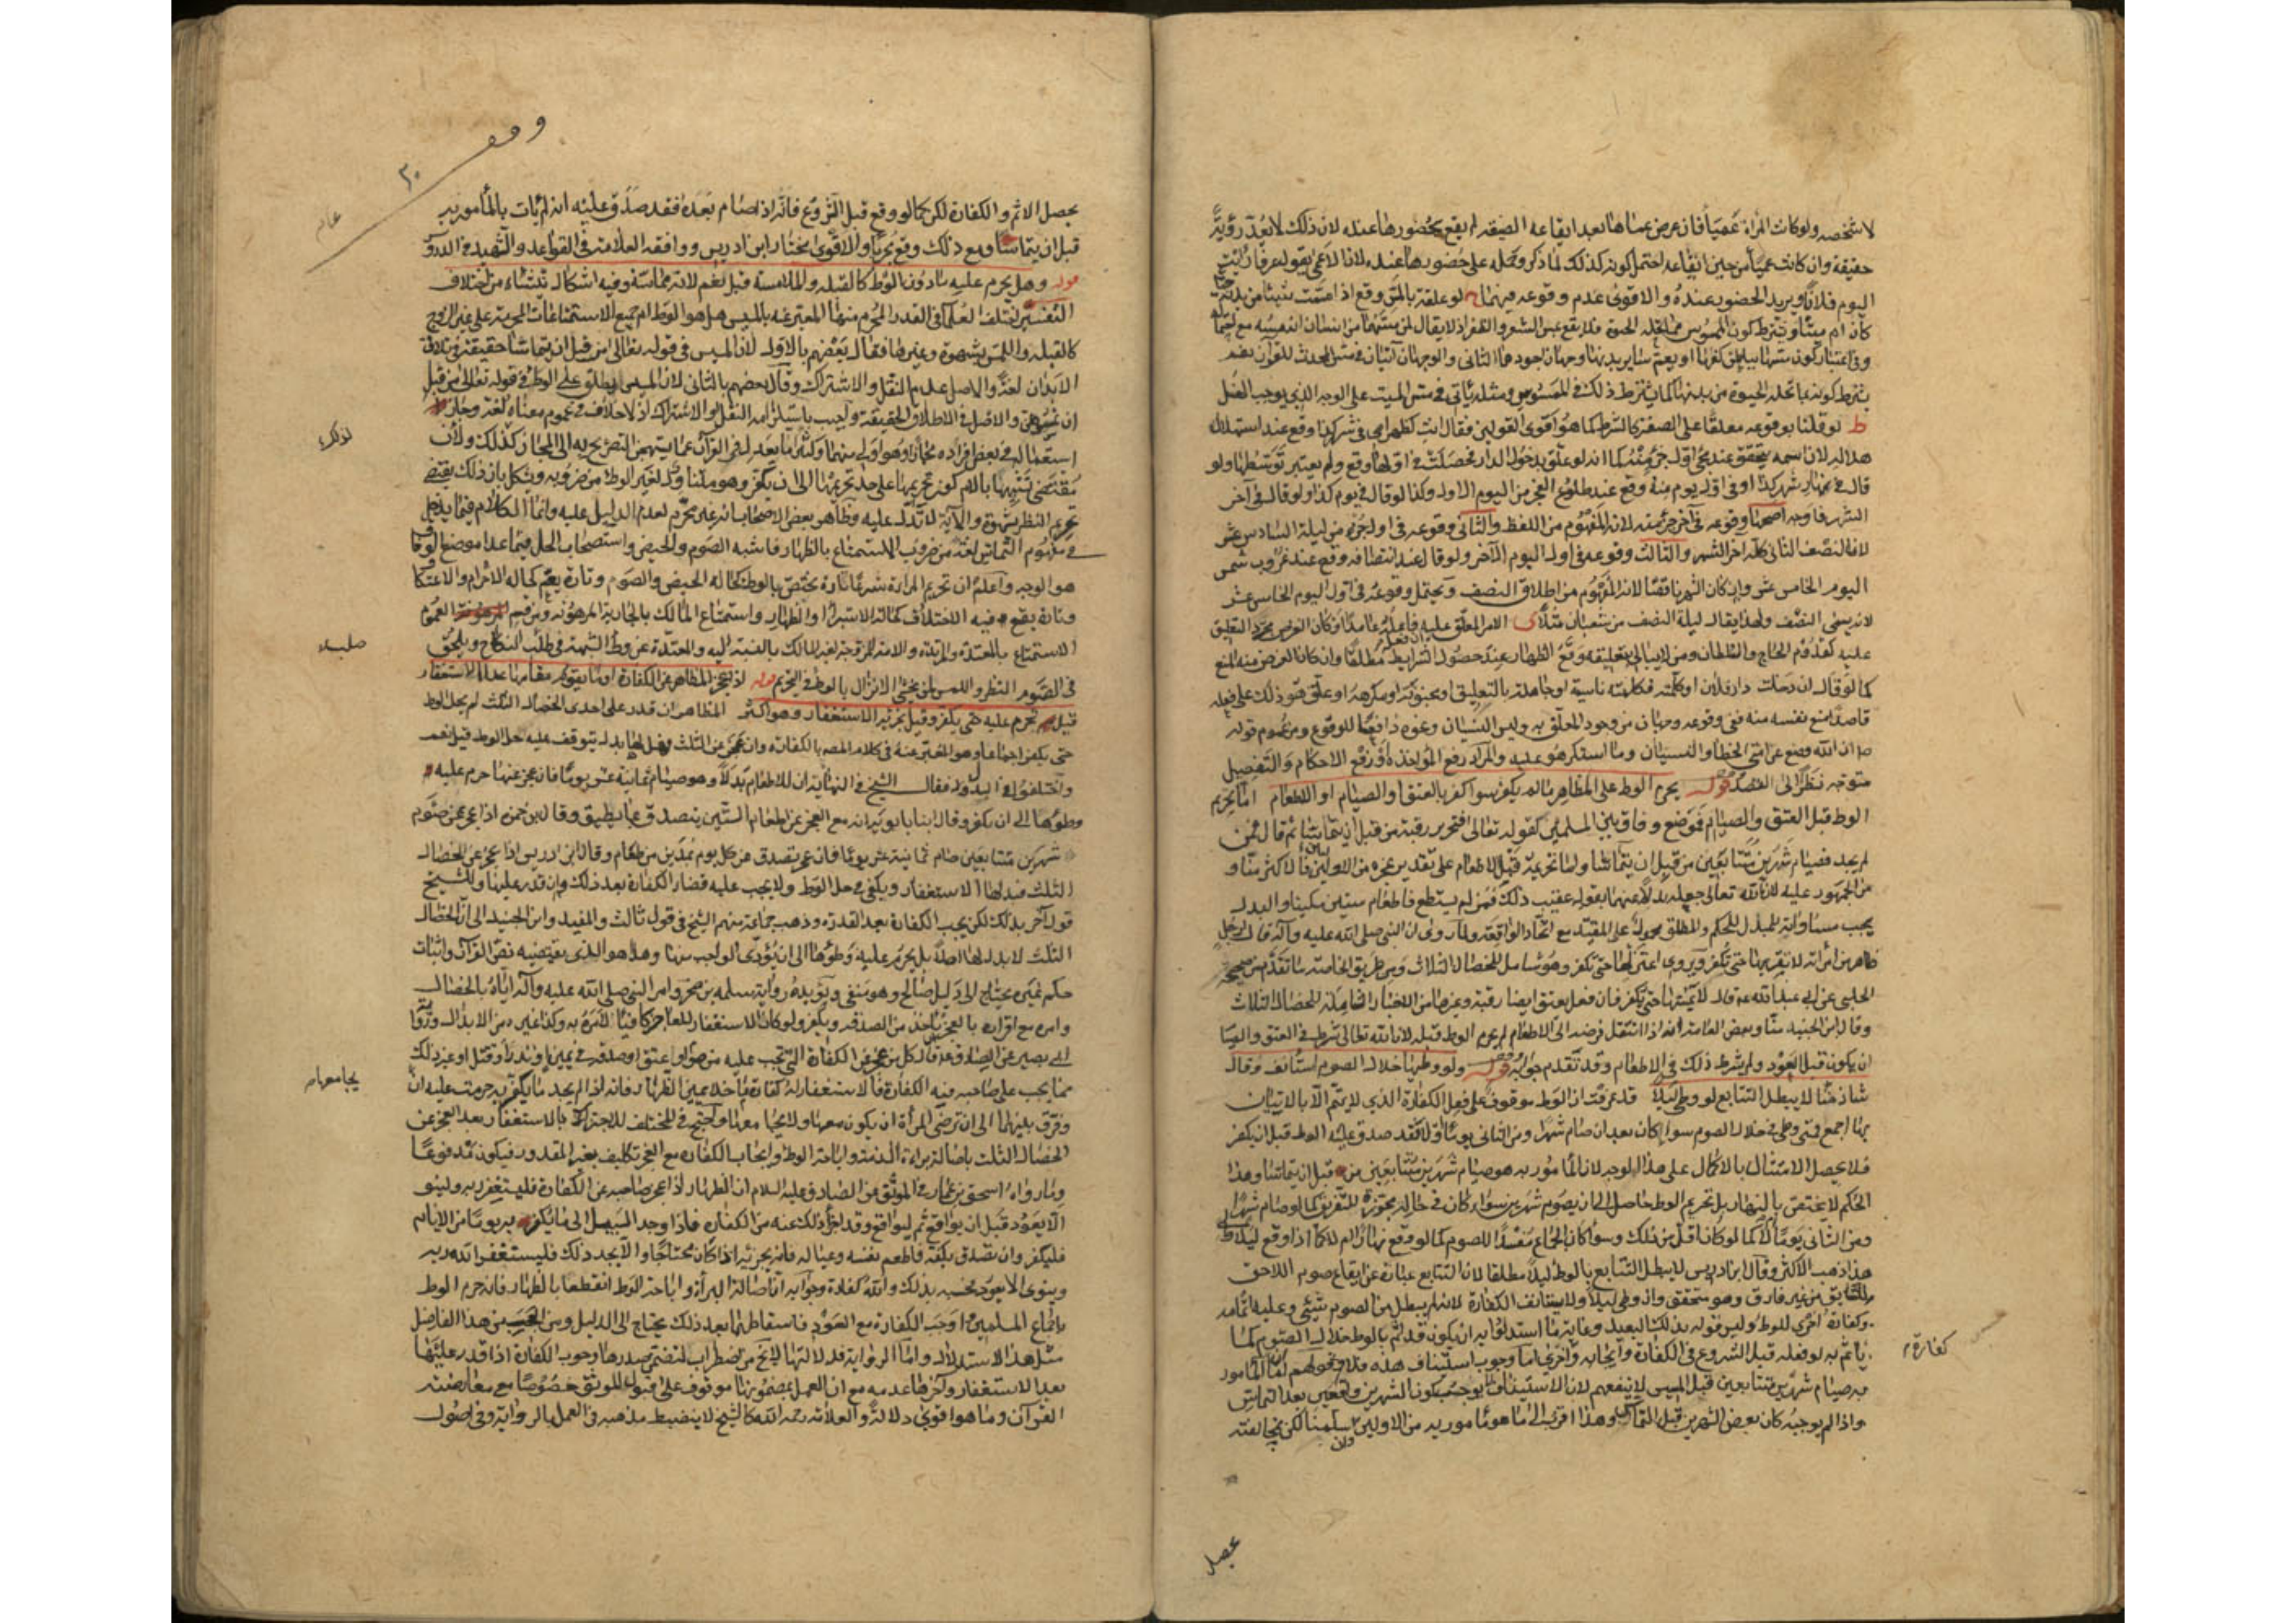 لا شخصه ولو كانت المرأة عمياء فان عرض عماها بعد ايقاعه الصيغة لم يقع بحضورها عنده لان ذلك لا يعد رؤية
حقيقة وان كانت عمياء من حين ايقاعه احتمل كونه كذلك لما ذكر وحمله على حضورها عنده لان الاعمى يقول عرفا رايت
اليوم فلانا ويريد الحضور عنده والاقوى عدم وقوعه فيهما ح لو علقه بالمس وقع اذا مست شيئا من بدنه
كأن ام ميتا ويشترط كون الممسوس مما تحله الحيوة فلا يقع بمس الشعر والظفر اذ لا يقال لمن مسهما من انسان انه مسه مع
وفي اعتبار كون مسها بباطن كفها او يعم سائر بدنها وجهان اجودهما الثاني والوجهان آتيان في مس المحدث للقرآن نعم
يشترط كونه بما تحله الحيوة من بدنها كما يشترط ذلك في الممسوس ومثله ياتي في مس الميت على الوجه الذي يوجب الغسل
ط لو قلنا بوقوعه معلقا على الصفة كالشرط كما هو اقوى القولين فقال انت كظهر امي في شهر كذا وقع عند استهلال
هلاله لان اسمه يتحقق عند مجئ اول جزء منه كما انه لو علق بدخول الدار فحصلت في اولها وقع ولم يعتبر توسطها ولو
قال في نهار شهر كذا او في اول يوم منه وقع عند طلوع الفجر من اليوم الاول وكذا لو قال في يوم كذا ولو قال في آخر
الشهر فاوجه اصحها وقوعه في آخر جزء منه لانه المفهوم من اللفظ والثاني وقوعه في اول جزء من ليلة السادس عشر
لان النصف الثاني كله آخر الشهر والثالث وقوعه في اول اليوم الآخر ولو قال عند انتصافه وقع عند غروب شمس
اليوم الخامس عشر وان كان الشهر ناقصا لانه المفهوم من اطلاق النصف ويحتمل وقوعه في اول اليوم الخامس عشر
لانه يسمى النصف ولهذا يقال ليلة النصف من شعبان مثلا ى الامر المعلق عليه فاعله عامدا وكان الغرض مجرد التعليق
عليه كقدوم الحاج والسلطان ومن لا يبالي بتعليقه وقع الظهار عند حصول الشرايط مطلقا وان كان الغرض منه المنع
كما لو قال ان دخلت دار فلان او كلمته فكلمته ناسية او جاهلة بالتعليق او مجنونة او مكرهة او علق هو ذلك على فعله
قاصدا منع نفسه منه ففي وقوعه وجهان من وجود المعلق به وليس النسيان ونحوه دافعا للوقوع ومن عموم قوله
ص ان الله وضع عن امتي الخطأ والنسيان وما استكرهوا عليه والمراد رفع المؤاخذة او رفع الاحكام والتفصيل
متوجه نظرا الى القصد قوله يحرم الوطء على المظاهر ما لم يكفر سواء كفر بالعتق او الصيام او الاطعام اما تحريم
الوطء قبل العتق والصيام فموضع وفاق بين المسلمين لقوله تعالى فتحرير رقبة من قبل ان يتماسا ثم قال فمن
لم يجد فصيام شهرين متتابعين من قبل ان يتماسا واما تحريمه قبل الاطعام على تقدير عجزه من الاولين فالاكثر منا و
من الجمهور عليه لان الله تعالى جعله بدلا عنهما بقوله عقيب ذلك فمن لم يستطع فاطعام ستين مسكينا والبدل
يجب مساواته للمبدل في الحكم والمطلق محمول على المقيد مع اتحاد الواقعة ولما روى ان النبي صلى الله عليه وآله قال لرجل
ظاهر من امرأته لا تقربها حتى تكفر ويروى اعتزلها حتى تكفر وهو شامل للخصال الثلاث ومن طريق الخاصة ما تقدم من صحيحة
الحلبي عن ابي عبد الله عه قال لا يمسها حتى يكفر فان فعل يعتق ايضا رقبة وغيرها من الاخبار الشاملة للخصال الثلاث
وقال ابن الجنيد منا وبعض العامة انه اذا انتقل فرضه الى الاطعام لم يحرم الوطء قبله لان الله تعالى شرط في العتق والصيا
ان يكون قبل العود ولم يشرط ذلك في الاطعام وقد تقدم جوابه قوله ولو وطئها خلال الصوم استأنف وقال
شاذ منا لا يبطل التتابع لو وطئ ليلا قد عرفت ان الوطء موقوف على فعل الكفارة الذي لا يتم الا بالاتيان
بها اجمع فمتى وطئ في خلال الصوم سواء كان بعد ان صام شهرا ومن الثاني يوما ام لا فقد صدق عليه الوطء قبل ان يكفر
فلا يحصل الامتثال بالاكمال على هذا الوجه لان المأمور به هو صيام شهرين متتابعين من قبل ان يتماسا وهذا
الحكم لا يختص بالنهار بل تحريم الوطء حاصل الى ان يصوم شهرين سواء كان في حالة يجوز له التفريق كما لو صام شهرا
ومن الثاني يوما ام لا كما لو كان اقل من ذلك وسواء كان الجماع مفسدا للصوم كما لو وقع نهارا ام لا كما اذا وقع ليلا والى
هذا ذهب الاكثر وقال ابن ادريس لا يبطل التتابع بالوطء ليلا مطلقا لان التتابع عبارة عن ايقاع صوم اللاحق
للسابق من غير فارق وهو متحقق واذ وطئ ليلا ولا يستانف الكفارة لانه لم يبطل من الصوم شيئ وعليه اتمامه
وكفارة اخرى للوطء وليس قوله بذلك البعيد وغاية ما استدلوا به ان يكون قد اثم بالوطء خلال الصوم كما
ياثم به لو فعله قبل الشروع في الكفارة وايجاب اخرى اما وجوب استيناف هذه فلا وقولهم ان المامور
به صيام شهرين متتابعين قبل المسيس لا ينفعهم لان الاستيناف يوجب كون الشهرين واقعين بعد التماس
واذا لم يوجبه كان بعض الشهرين قبل التماس وهذا اقرب الى ما هو مامور به من الاولين سلمنا لكن بمخالفته
وان
كفارة م
يحصل
وقف
عام
يحصل الاثم والكفارة لكن كما لو وقع قبل الشروع فانه اذا صام بعده فقد صدق عليه انه لم يات بالمأمور به
قبل ان يتماسا ومع ذلك وقع مجزيا والاقوى مختار ابن ادريس ووافقه العلامة في القواعد والشهيد في الدروس
قوله وهل يحرم عليه ما دون الوطء كالقبلة والملامسة قيل نعم لانه مماسة وفيه اشكال تنشأ من اختلاف
التفسير اختلف العلماء في القدر المحرم منها المعبر عنه بالمسيس هل هو الوطء ام جميع الاستمتاعات المحرمة على غير الزوج
كالقبلة واللمس بشهوة وغيرها فقال بعضهم بالاول لان المسيس في قوله تعالى من قبل ان يتماسا حقيقة في تلاقي
الابدان لغة والاصل عدم النقل والاشتراك وقال بعضهم بالثاني لان المسيس يطلق على الوطء في قوله تعالى من قبل
ان تمسوهن والاصل في الاطلاق الحقيقة واجيب باستلزامه النقل او الاشتراك اذ لا خلاف في عموم معناه لغة وجاز
استعماله في بعض افراده مجازا وهو اولى منهما وكثيرا ما يعدل في القرآن عما يستهجن التصريح به الى المجاز كذلك ولان
مقتضى تشبيهها بالام كون تحريمها على حد تحريمها الى ان يكفر وهو متناول لغير الوطء من ضروبه ويشكل بان ذلك يقتضي
تحريم النظر بشهوة والآية لا تدل عليه وظاهر بعض الاصحاب انه غير محرم لعدم الدليل عليه وانما الكلام فيما يدخل
في مفهوم التماس لغة من ضروب الاستمتاع بالظهار فاشبه الصوم والحيض واستصحاب الحل فيما عدا موضع الوفاق
هو الوجه واعلم ان تحريم المراة شرعا تارة يختص بالوطء كحالة الحيض والصوم وتارة يعم كحالة الاحرام والاعتكاف
وتارة يقع فيه الاختلاف كحالة الاستبراء والظهار واستمتاع المالك بالجارية المرهونة ومن قسم العموم
الاستمتاع بالمعتدة والمرتدة والامة المزوجة لغير المالك بالنسبة اليه والمعتدة عن وطء الشبهة في صلب النكاح ويلحق
في الصوم النظر واللمس لمن يخشى الانزال بالوطء في التحريم قوله اذا عجز المظاهر عن الكفارة او ما يقوم مقامها عدا الاستغفار
قيل يحرم عليه حتى يكفر وقيل يجزئه الاستغفار وهو اكثر المظاهر ان قدر على احدى الخصال الثلث لم يحل له الوط
حتى يكفر اجماعا وهو المعتبر عنه في كلام المصه بالكفارة وان عجز عن الثلث فهل لها بدل يتوقف عليه حل الوطء قيل نعم
واختلفوا في البدل فقال الشيخ في النهاية ان للاطعام بدلا وهو صيام ثمانية عشر يوما فان عجز عنها حرم عليه
وطؤها الى ان يكفر وقال ابنا بابويه انه مع العجز عن اطعام الستين يتصدق بما يطيق وقال ابن حمزة اذا عجز عن صوم
شهرين متتابعين صام ثمانية عشر يوما فان عجز تصدق عن كل يوم بمدين من طعام وقال ابن ادريس اذا عجز عن الخصال
الثلث فبدلها الاستغفار ويكفي في حل الوطء ولا يجب عليه قضاء الكفارة بعد ذلك وان قدر عليها وللشيخ
قول آخر بذلك لكن يجب الكفارة بعد القدرة وذهب جماعة منهم الشيخ في قول ثالث والمفيد وابن الجنيد الى ان الخصال
الثلث لا بدل لها اصلا بل يحرم عليه وطؤها الى ان يؤدى الواجب منها وهذا هو الذي يقتضيه نص القرآن واثبات
حكم غيره يحتاج الى دليل صالح وهو منفي ويؤيده رواية سلمة بن صخر وامر النبي صلى الله عليه وآله اياه بالخصال
وامره مع اقراره بالعجز باخذ من الصدقة ويكفر ولو كان الاستغفار للعاجز كافيا لأمره به وكذا غيره من الابدال ورواية
ابي بصير عن الصادق عه قال كل من عجز عن الكفارة التي تجب عليه من صوم او عتق او صدقة في يمين او نذر او قتل او غير ذلك
مما يجب على صاحبه فيه الكفارة فالاستغفار له كفارة ما خلا يمين الظهار فانه اذا لم يجد ما يكفر به حرمت عليه ان
وفرق بينهما الى ان ترضى المرأة ان يكون معها ولا يجامعها واحتج في المختلف للاجتزاء بالاستغفار بعد العجز عن
الخصال الثلث باصالة براءة الذمة واباحة الوطء وايجاب الكفارة مع العجز تكليف بغير المقدور فيكون مدفوعا
وما رواه اسحق بن عمار في الموثق عن الصادق عليه السلام ان الظهار اذا عجز صاحبه عن الكفارة فليستغفر ربه ولينو
الا يعود قبل ان يواقع ثم ليواقع وقد اجزأ ذلك عنه من الكفارة فاذا وجد السبيل الى ما يكفر به يوما من الايام
فليكفر وان تصدق بكفه فاطعم نفسه وعياله فانه يجزئه اذا كان محتاجا والا يجد ذلك فليستغفر الله ربه
وينوى الا يعود فحسبه بذلك والله كفارة وجوابه ان اصالة البراءة واباحة الوطء انقطعا بالظهار فانه حرم الوطء
باجماع المسلمين واوجب الكفارة مع العود فاسقاطها بعد ذلك يحتاج الى الدليل ومن العجب من هذا الفاضل
مثل هذا الاستدلال واما الرواية فدلالتها لا تخ من اضطراب لتضمن صدرها وجوب الكفارة اذا قدر عليها
بعد الاستغفار وآخرها عدمه مع ان العمل بمضمونها موقوف على قبول الموثق خصوصا مع معارضته
القرآن وما هو اقوى دلالة والعلامة رحمه الله كالشيخ لا ينضبط مذهبه في العمل بالرواية وفي اصول
لذكره
صلب
يجامعها